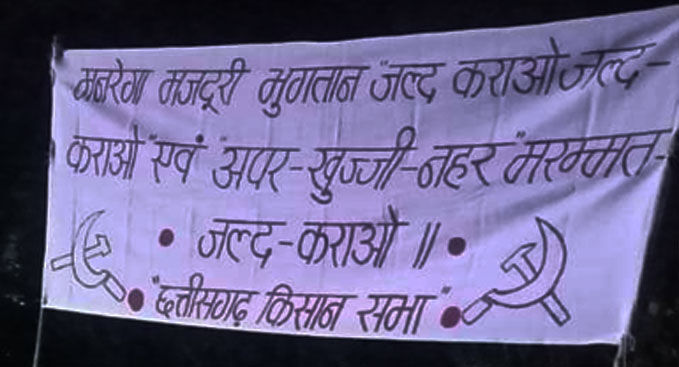 मनरेगा मजदूरी भुगतान "जल्द कराओ जल्द-
कराओ "एवं "अपर-खुज्जी-नहर "मरम्मत-
• जल्द-कराओ ॥ •
• "छत्तीसगढ़ किसान सभा" •